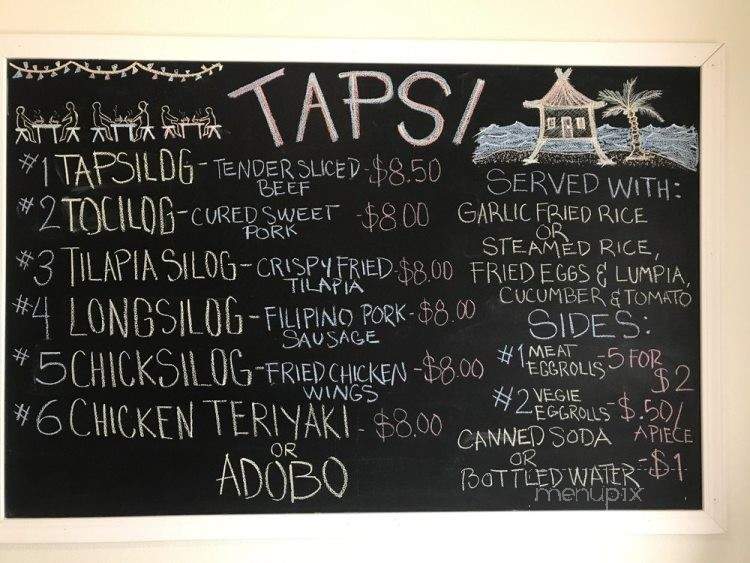 TAPSI
#1 TAPSILOG - TENDER SLICED BEEF - $8.50
#2 TOCILOG - CURED SWEET PORK - $8.00
#3 TILAPIA SILOG - CRISPY FRIED TILAPIA - $8.00
#4 LONGSILOG - FILIPINO PORK SAUSAGE - $8.00
#5 CHICKSILOG - FRIED CHICKEN WINGS - $8.00
#6 CHICKEN TERIYAKI - $8.00
OR
ADOBO
SERVED WITH:
GARLIC FRIED RICE
OR
STEAMED RICE,
FRIED EGGS & LUMPIA,
CUCUMBER & TOMATO
SIDES:
#1 MEAT EGGROLLS - 5 FOR $2
#2 VEGIE EGGROLLS - $.50/ APIECE
CANNED SODA
OR
BOTTLED WATER - $1
menupix